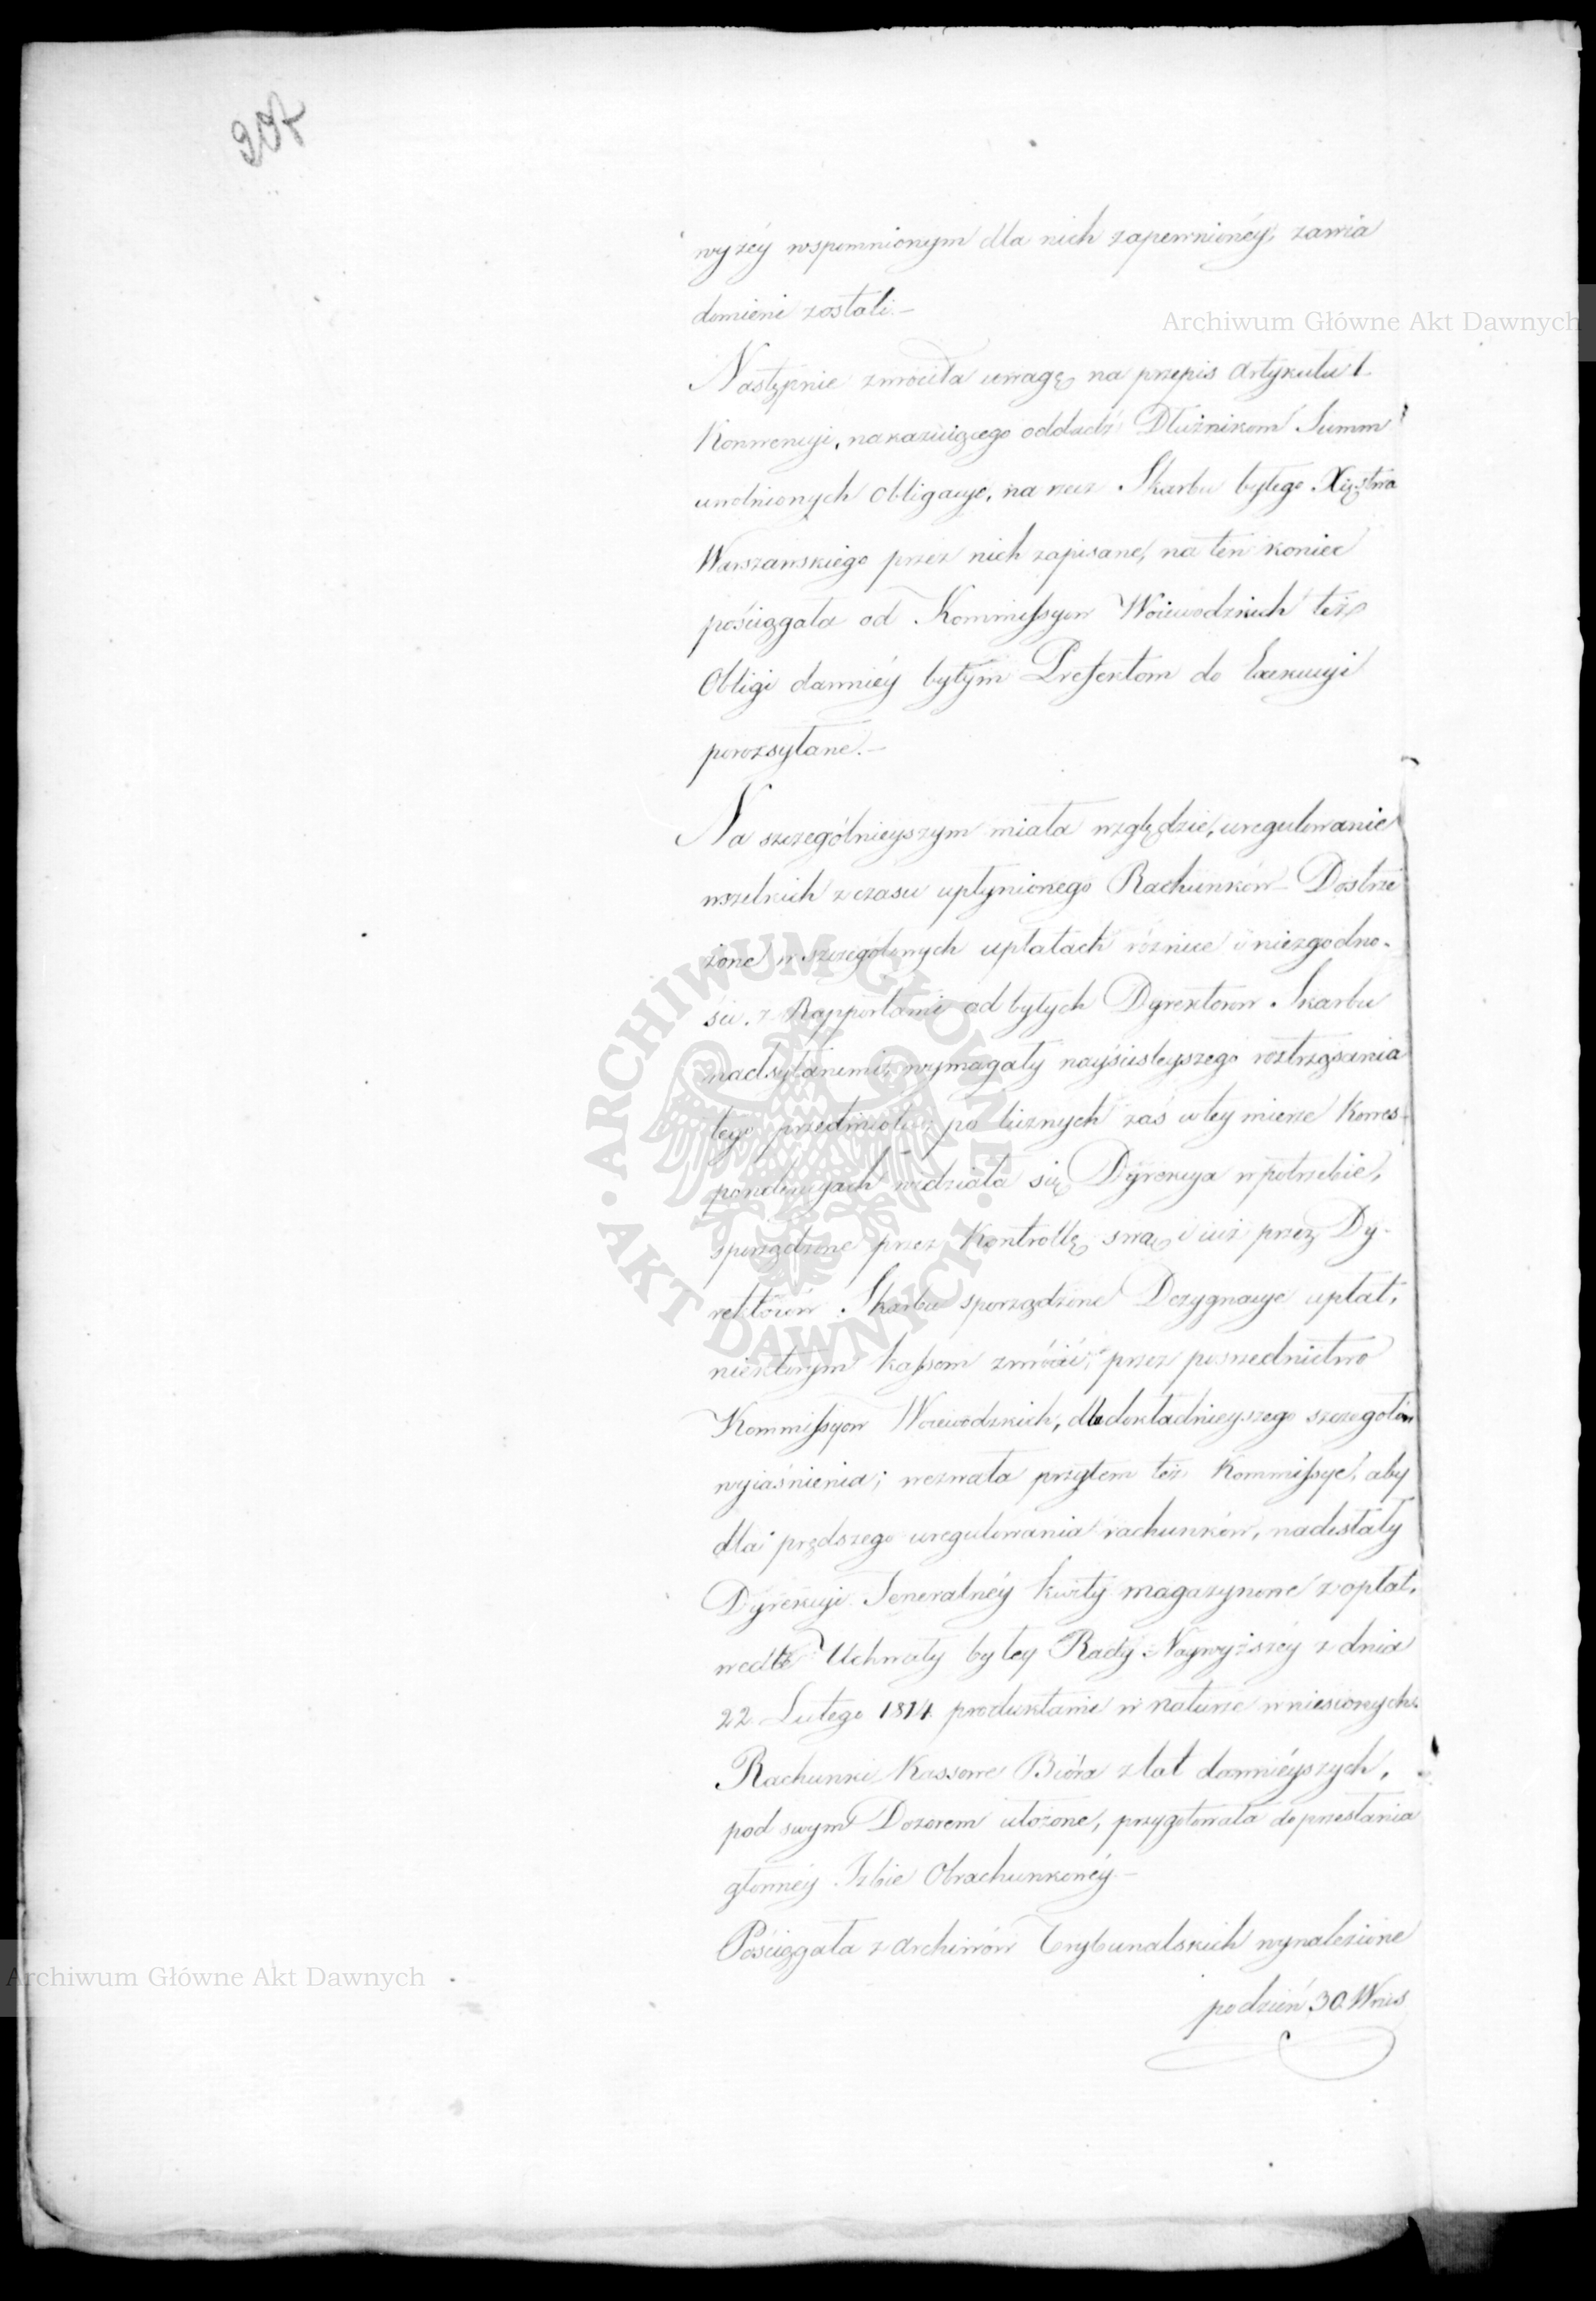 207
wyżéy wspomnionym dla nich zapewnionéy, zawia
domieni zostali.—
Następnie zwróciła uwagę na przepis Artykułu 1.
Konwencyi, nakazuiącego oddadź Dłużnikom Summ
uwolnionych Obligacye, na rzecz Skarbu byłego Xięstwa
Warszawskiego przez nich zapisane, na ten koniec
pościągała od Kommissyow Woiewodzkich też
Obligi dawniéy byłym Prefektom do Exekucyi
porozsyłane.—
Na szczególnieyszym miała względzie, uregulowanie
wszelkich z czasu upłynionego Rachunków— Dostrze
żone w szczegółowych upłatach różnice i niezgodno-
ści z Rapportami od byłych Dyrektorow Skarbu
nadsyłanemi, wymagały nayściśleyszego roztrząsania
tego przedmiotu, po licznych zaś w tey mierze Korres-
pondencyach widziała się Dyrekcya w potrzebie,
sporządzone przez Kontrollę swą i iuż przez Dy-
rektorów Skarbu sporządzone Dezygnacye upłat,
niektorym kassom zwrócić, przez posrzednictwo
Kommissyow Woiewodzkich, dla dokładnieyszego szczegołów
wyiaśnienia; wezwała przytem też Kommissye, aby
dla prędszego uregulowania rachunków, nadesłały
Dyrekcyi Jeneralnéy kwity magazynowe z opłat,
wedle Uchwały byłey Rady Naywyższéy z dnia
22 Lutego 1814 produktami w naturze wniesionych.
Rachunki Kassowe Biόra z lat dawniéyszych,
pod swym Dozorem ułożone, przygotowała do przesłania
głównéy Izbie Obrachunkowéy.—
Pościągała z Archiwów Trybunalskich wynalezione
po dzień 30. Wrześ
Archiwum Główne Akt Dawnych
Archiwum Główne Akt Dawnych
ARCHIWUM GŁÓWNE
AKT DAWNYCH